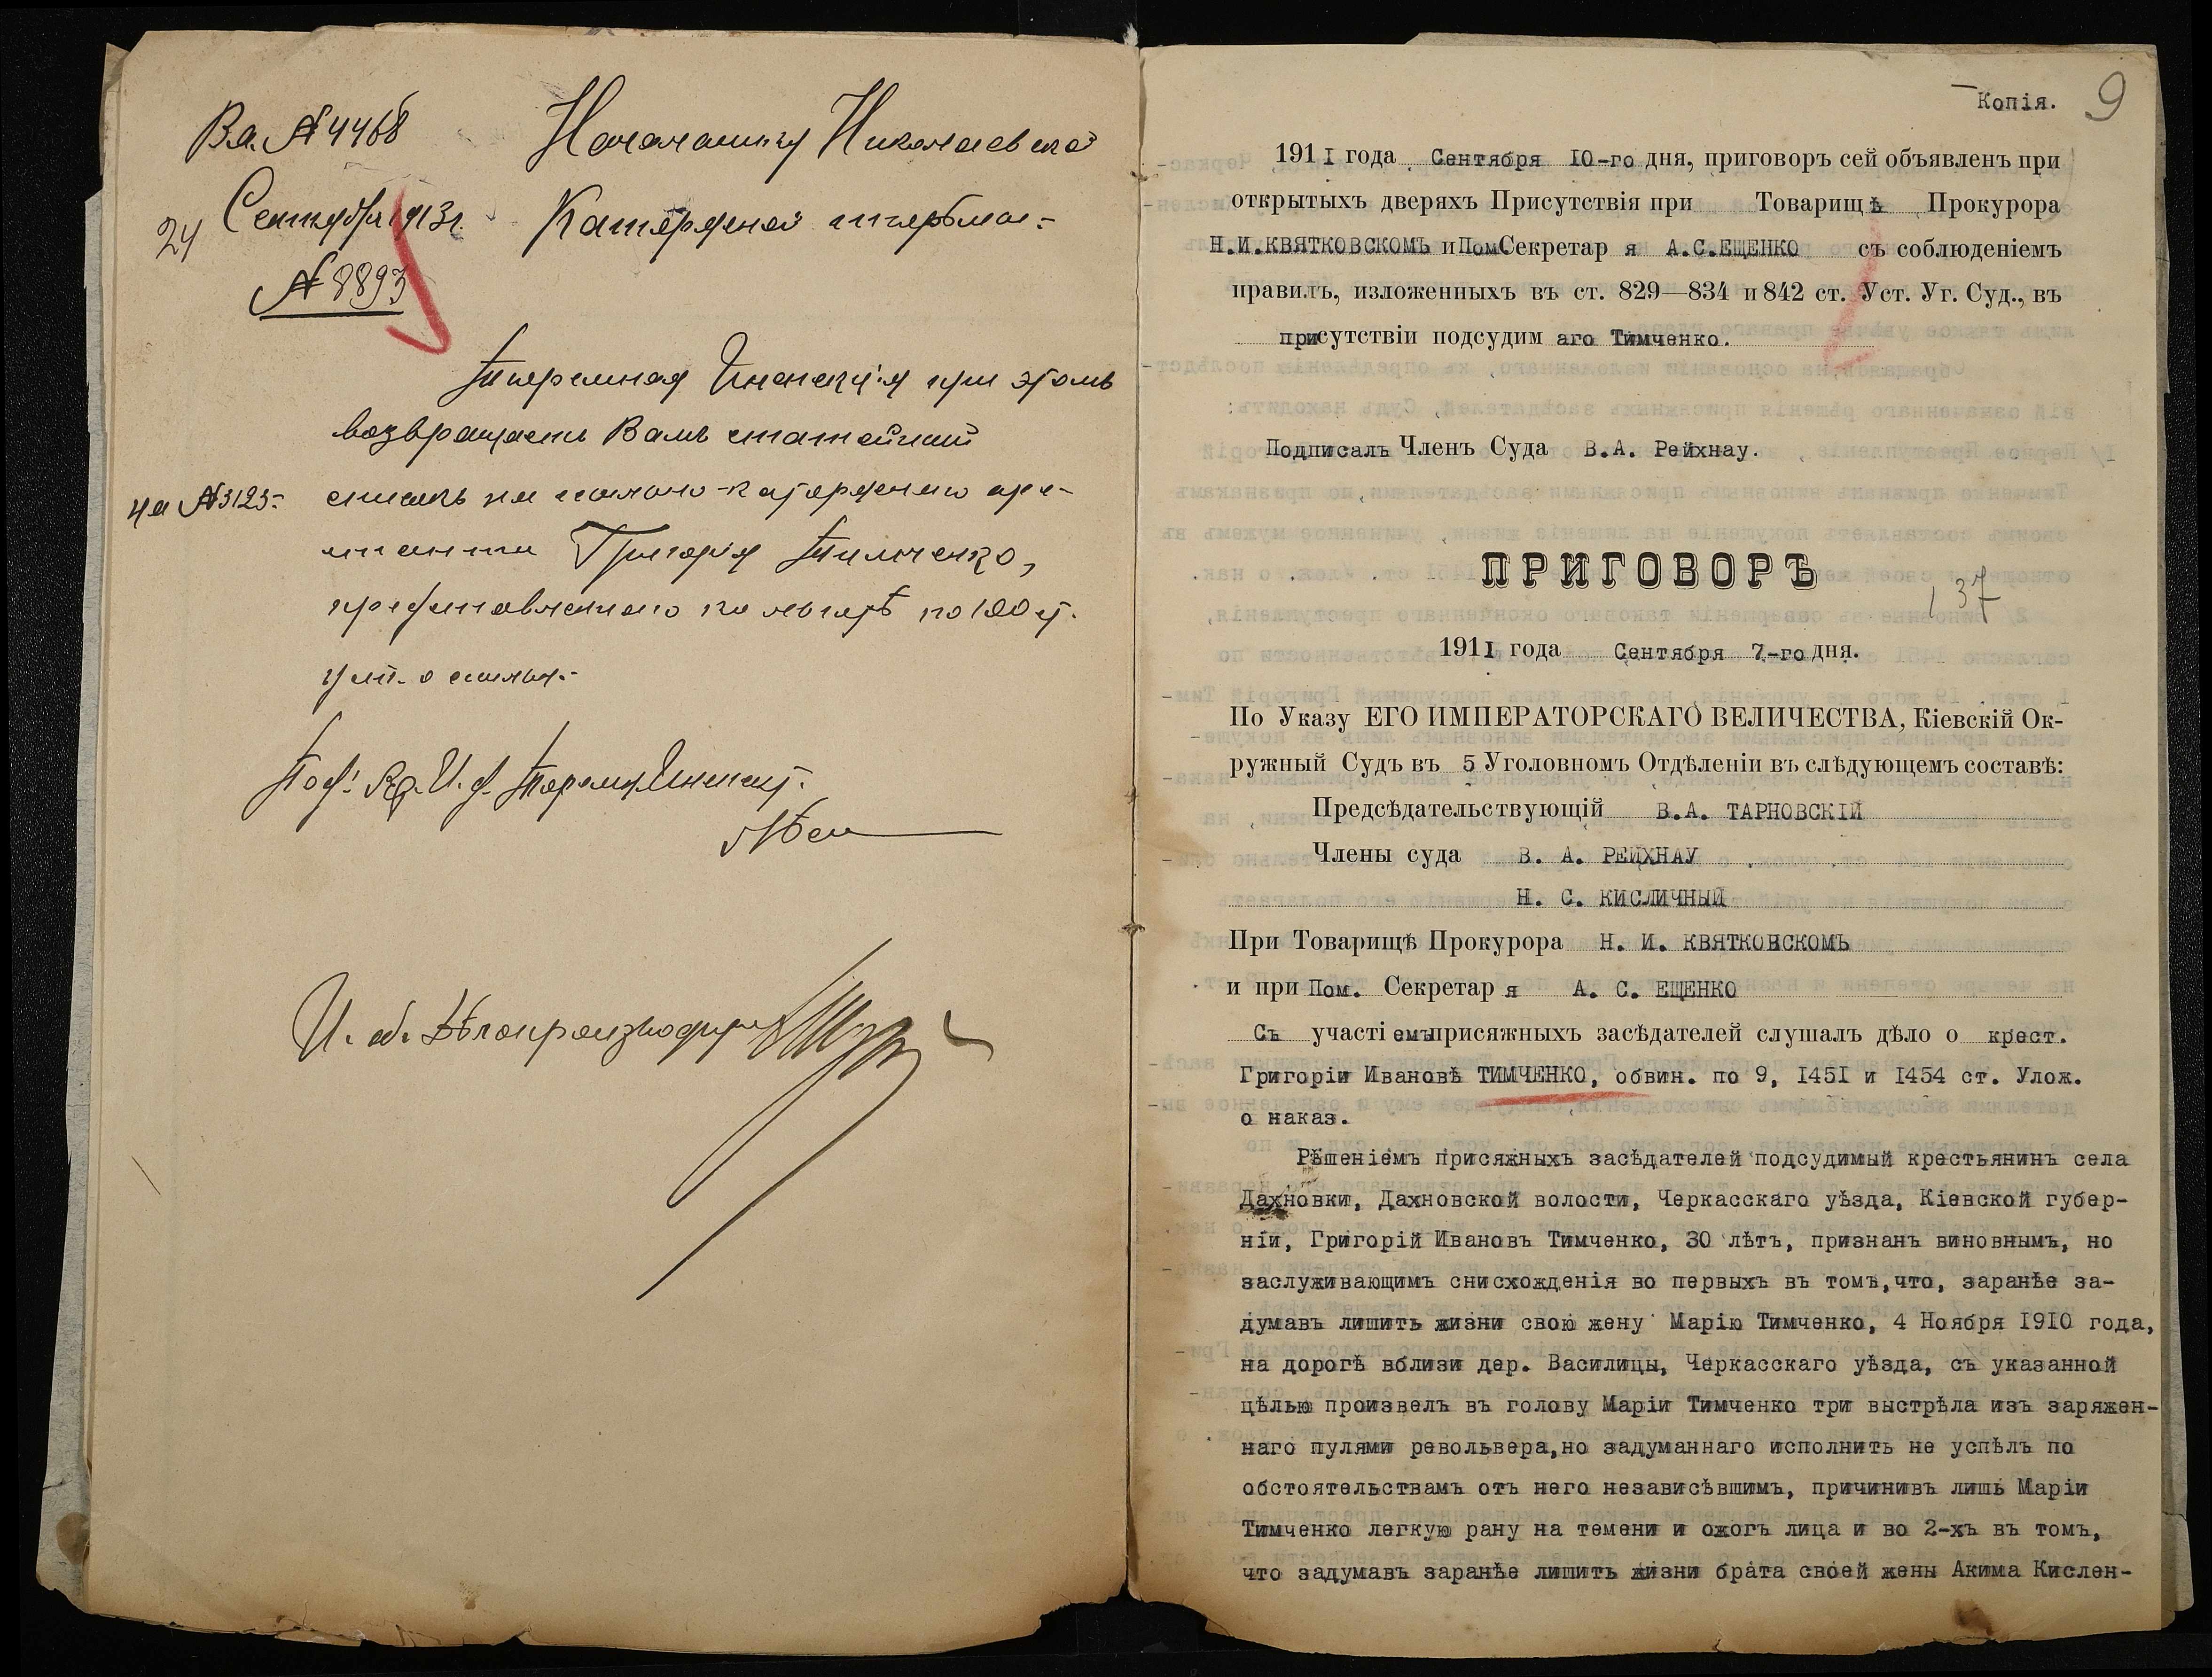 Вх. № 4468
24 Сентября 1913 г.
№ 8893
на № 3125.
Начальнику Николаевской
Каторжной тюрьмы.
Тюремная Инспекція при этомъ
возвращаетъ Вамъ статейный
списокъ на ссыльно-каторжнаго аре-
станта Григорія Тимченко,
по 100 ст.
уст. о ссыльн.
Под: Тюремн. Инспект.
И. об. Дѣлопроизводителя
Копія.
9
1911 года Сентября 10-го дня, приговоръ сей объявленъ при
открытыхъ дверяхъ Присутствія при Товарищѣ Прокурора
Н.И.КВЯТКОВСКОМЪ и Пом Секретаря А.С.ЕЩЕНКО съ соблюденіемъ
правилъ, изложенныхъ въ ст. 829—834 и 842 ст. Уст. Уг. Суд., въ
присутствіи подсудимаго Тимченко.
Подписалъ Членъ Суда В.А. Рейхнау.
ПРИГОВОРЪ
137
1911 года Сентября 7-го дня.
По Указу ЕГО ИМПЕРАТОРСКАГО ВЕЛИЧЕСТВА, Кіевскій Ок-
ружный Судъ въ 5 Уголовномъ Отдѣленіи въ слѣдующемъ составѣ:
Предсѣдательствующій В.А. ТАРНОВСКІЙ
Члены суда В. А. РЕЙХНАУ
Н. С. КИСЛИЧНЫЙ
При Товарищѣ Прокурора Н. И. КВЯТКОВСКОМЪ
и при Пом. Секретаря А. С. ЕЩЕНКО
Съ участіемъ присяжныхъ засѣдателей слушалъ дѣло о крест.
Григоріи Ивановѣ ТИМЧЕНКО, обвин. по 9, 1451 и 1454 ст. Улож.
о наказ.
Рѣшеніемъ присяжныхъ засѣдателей подсудимый крестьянинъ села
Дахновки, Дахновской волости, Черкасскаго уѣзда, Кіевской губер-
ніи, Григорій Ивановъ Тимченко, 30 лѣтъ, признанъ виновнымъ, но
заслуживающимъ снисхожденія во первыхъ въ томъ,что, заранѣе за-
думавъ лишить жизни свою жену Марію Тимченко, 4 Ноября 1910 года,
на дорогѣ вблизи дер. Василицы, Черкасскаго уѣзда, съ указанной
цѣлью произвелъ въ голову Маріи Тимченко три выстрѣла изъ заряжен-
наго пулями револьвера,но задуманнаго исполнить не успѣлъ по
обстоятельствамъ отъ него независѣвшимъ, причинивъ лишь Маріи
Тимченко легкую рану на темени и ожогъ лица и во 2-хъ въ томъ,
что задумавъ заранѣе лишить жизни брата своей жены Акима Кислен-